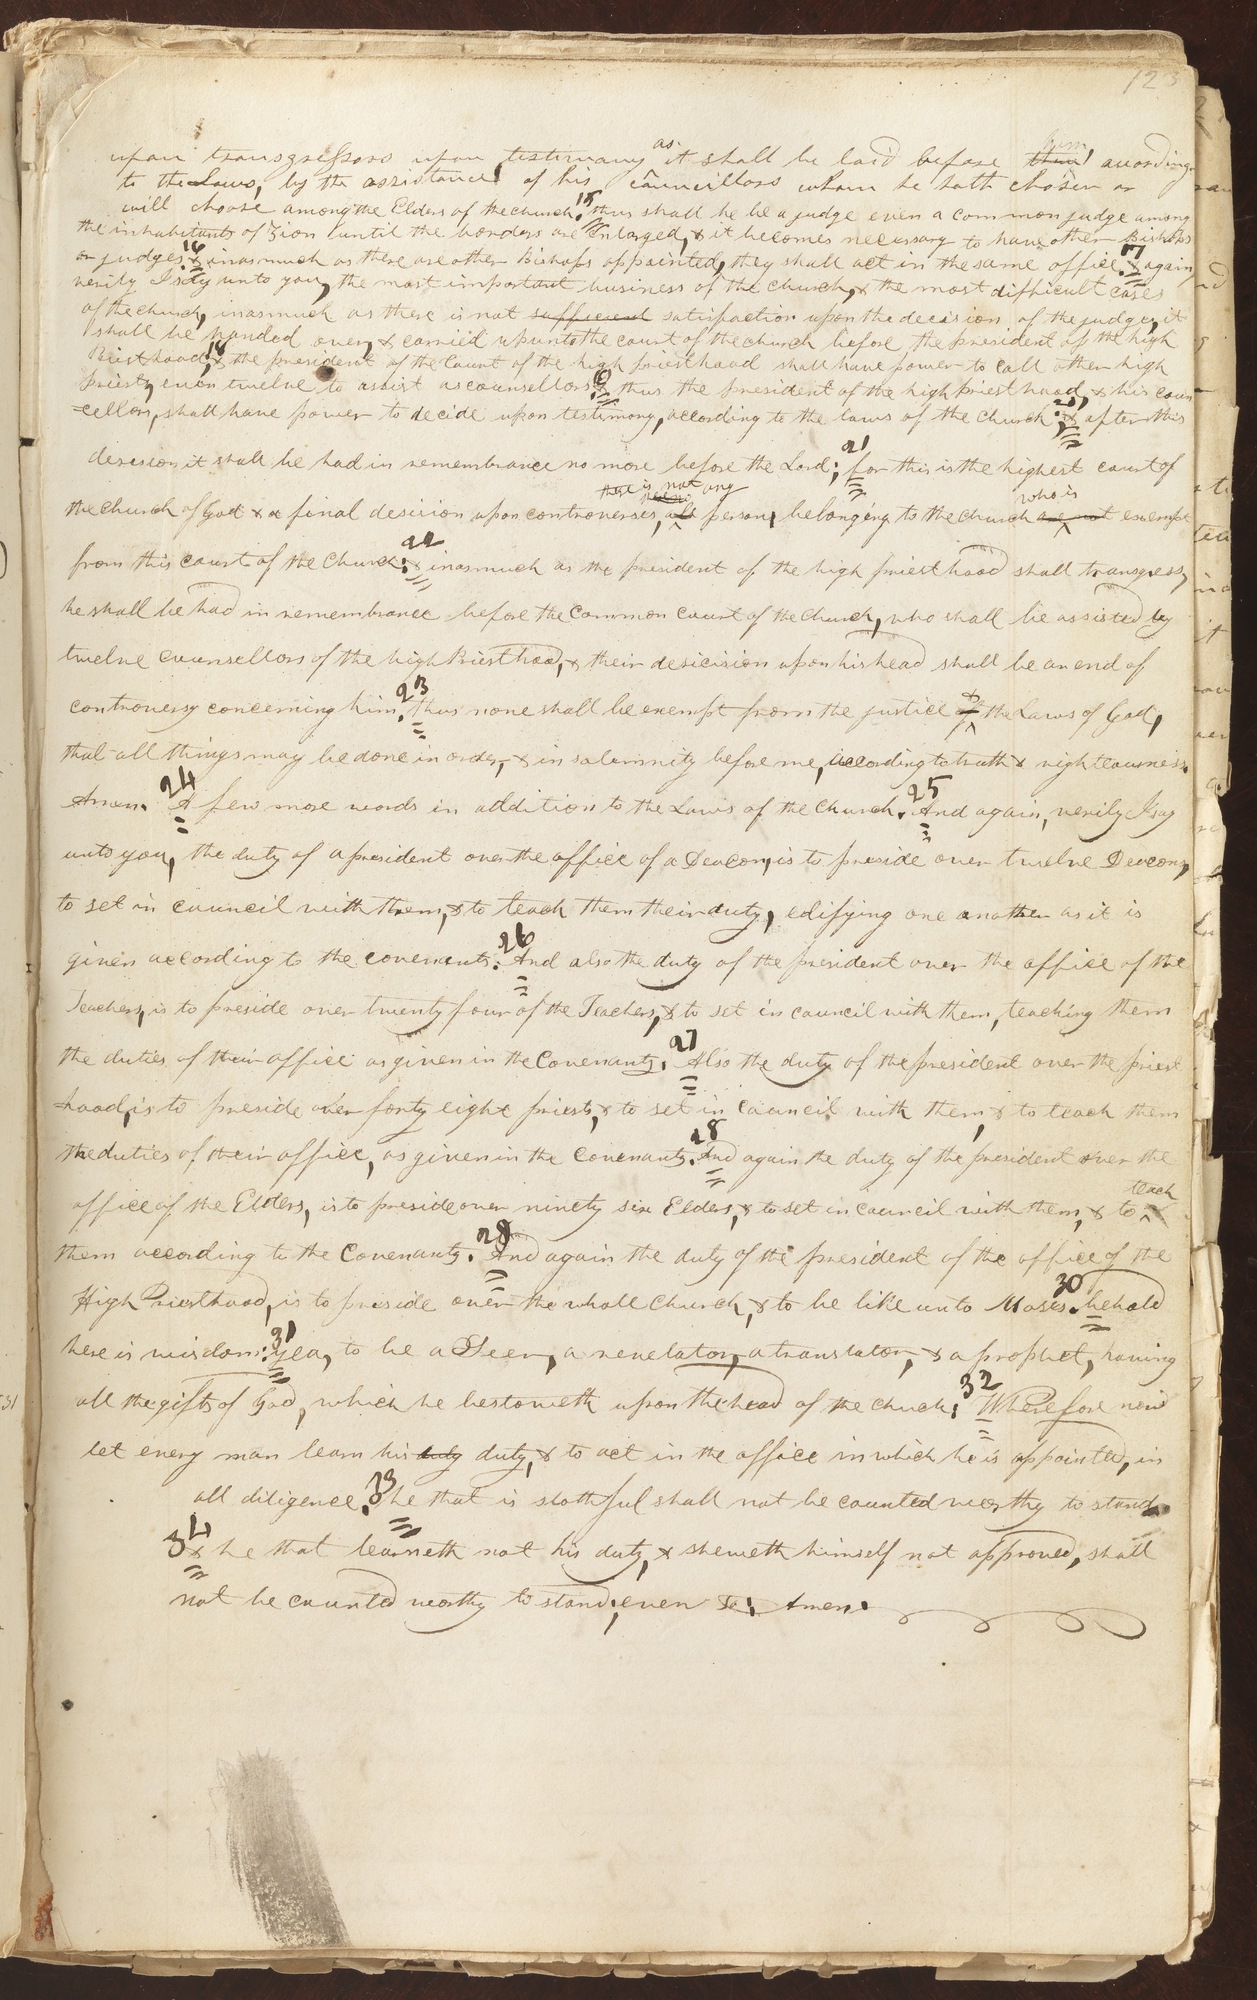 123
upon transgressors upon testimony as it shall be laid before them him according
to the Laws, by the assistance of his councillors whom he hath chosen or
will choose among the Elders of the church. 15 thus shall he be a judge even a common judge among
the inhabitants of Zion until the borders are enlarged, & it becomes necessary to have other Bishops
or judges. 16 & inasmuch as there are other Bishops appointed, they shall act in the same office. 17 & again,
verily I say unto you, the most important business of the church, & the most difficult cases
of the church, inasmuch as there is not sufficient satisfaction upon the decision of the judge, it
shall be handed over, & carried up unto the court of the church before the president of the high
Priesthood; 18 & the president of the Court of the high priesthood shall have power to call other high
priests, even twelve to assist as counsellors. & thus the president of the high priesthood, & his coun
-cellors, shall have power to decide upon testimony, according to the laws of the church. 20 & after this
desision it shall be had in remembrance no more before the Lord; 21 for this is the highest court of
the church of God & a final desision upon controverses, all there is not any person, belonging to the church are not who is exempt
from this court of the Church. 22 & inasmuch as the president of the high priesthood shall transgress,
he shall be had in remembrance before the common court of the church, who shall be assisted by
twelve counsellors of the high Priesthood, & their desicision upon his head shall be an end of
controversy concerning him. 23 thus none shall be exempt from the justice & the Laws of God,
that all things may be done in order, & in solemnity before me, according to truth & righteousness.
Amen. 24 A few more words in addition to the Laws of the church. 25 And again, verily I say
unto you, the duty of a president over the office of a Deacon, is to preside over twelve Deacons,
to set in council with them, & to teach them their duty, edifying one another as it is
given according to the covenants. 26 And also the duty of the president over the office of the
Teachers, is to preside over twenty four of the Teachers, & to set in council with them, teaching them
the duties of their office as given in the Covenants. 27 Also the duty of the president over the priest
hood, is to preside over forty eight priests, & to set in council with them, & to teach them
the duties of their office, as given in the Covenants. 28 And again the duty of the president over the
office of the Elders, is to preside over ninety six Elders, & to set in council with them, & to teach
them according to the Covenants. 28 And again the duty of the president of the office of the
High Priesthood, is to preside over the whole church, & to be like unto Moses. 30 behold
here is wisdom: 31 yea, to be a Seer, a revelator, a translator, & a prophet, having
all the gifts of God, which he bestoweth upon the head of the church: 32 Wherefore now
let every man learn his duty duty, & to act in the office in which he is appointed, in
all diligence. 33 he that is slothful shall not be counted worthy to stand
34 & he that learneth not his duty, & sheweth himself not approved, shall
not be counted worthy to stand; even so; Amen.